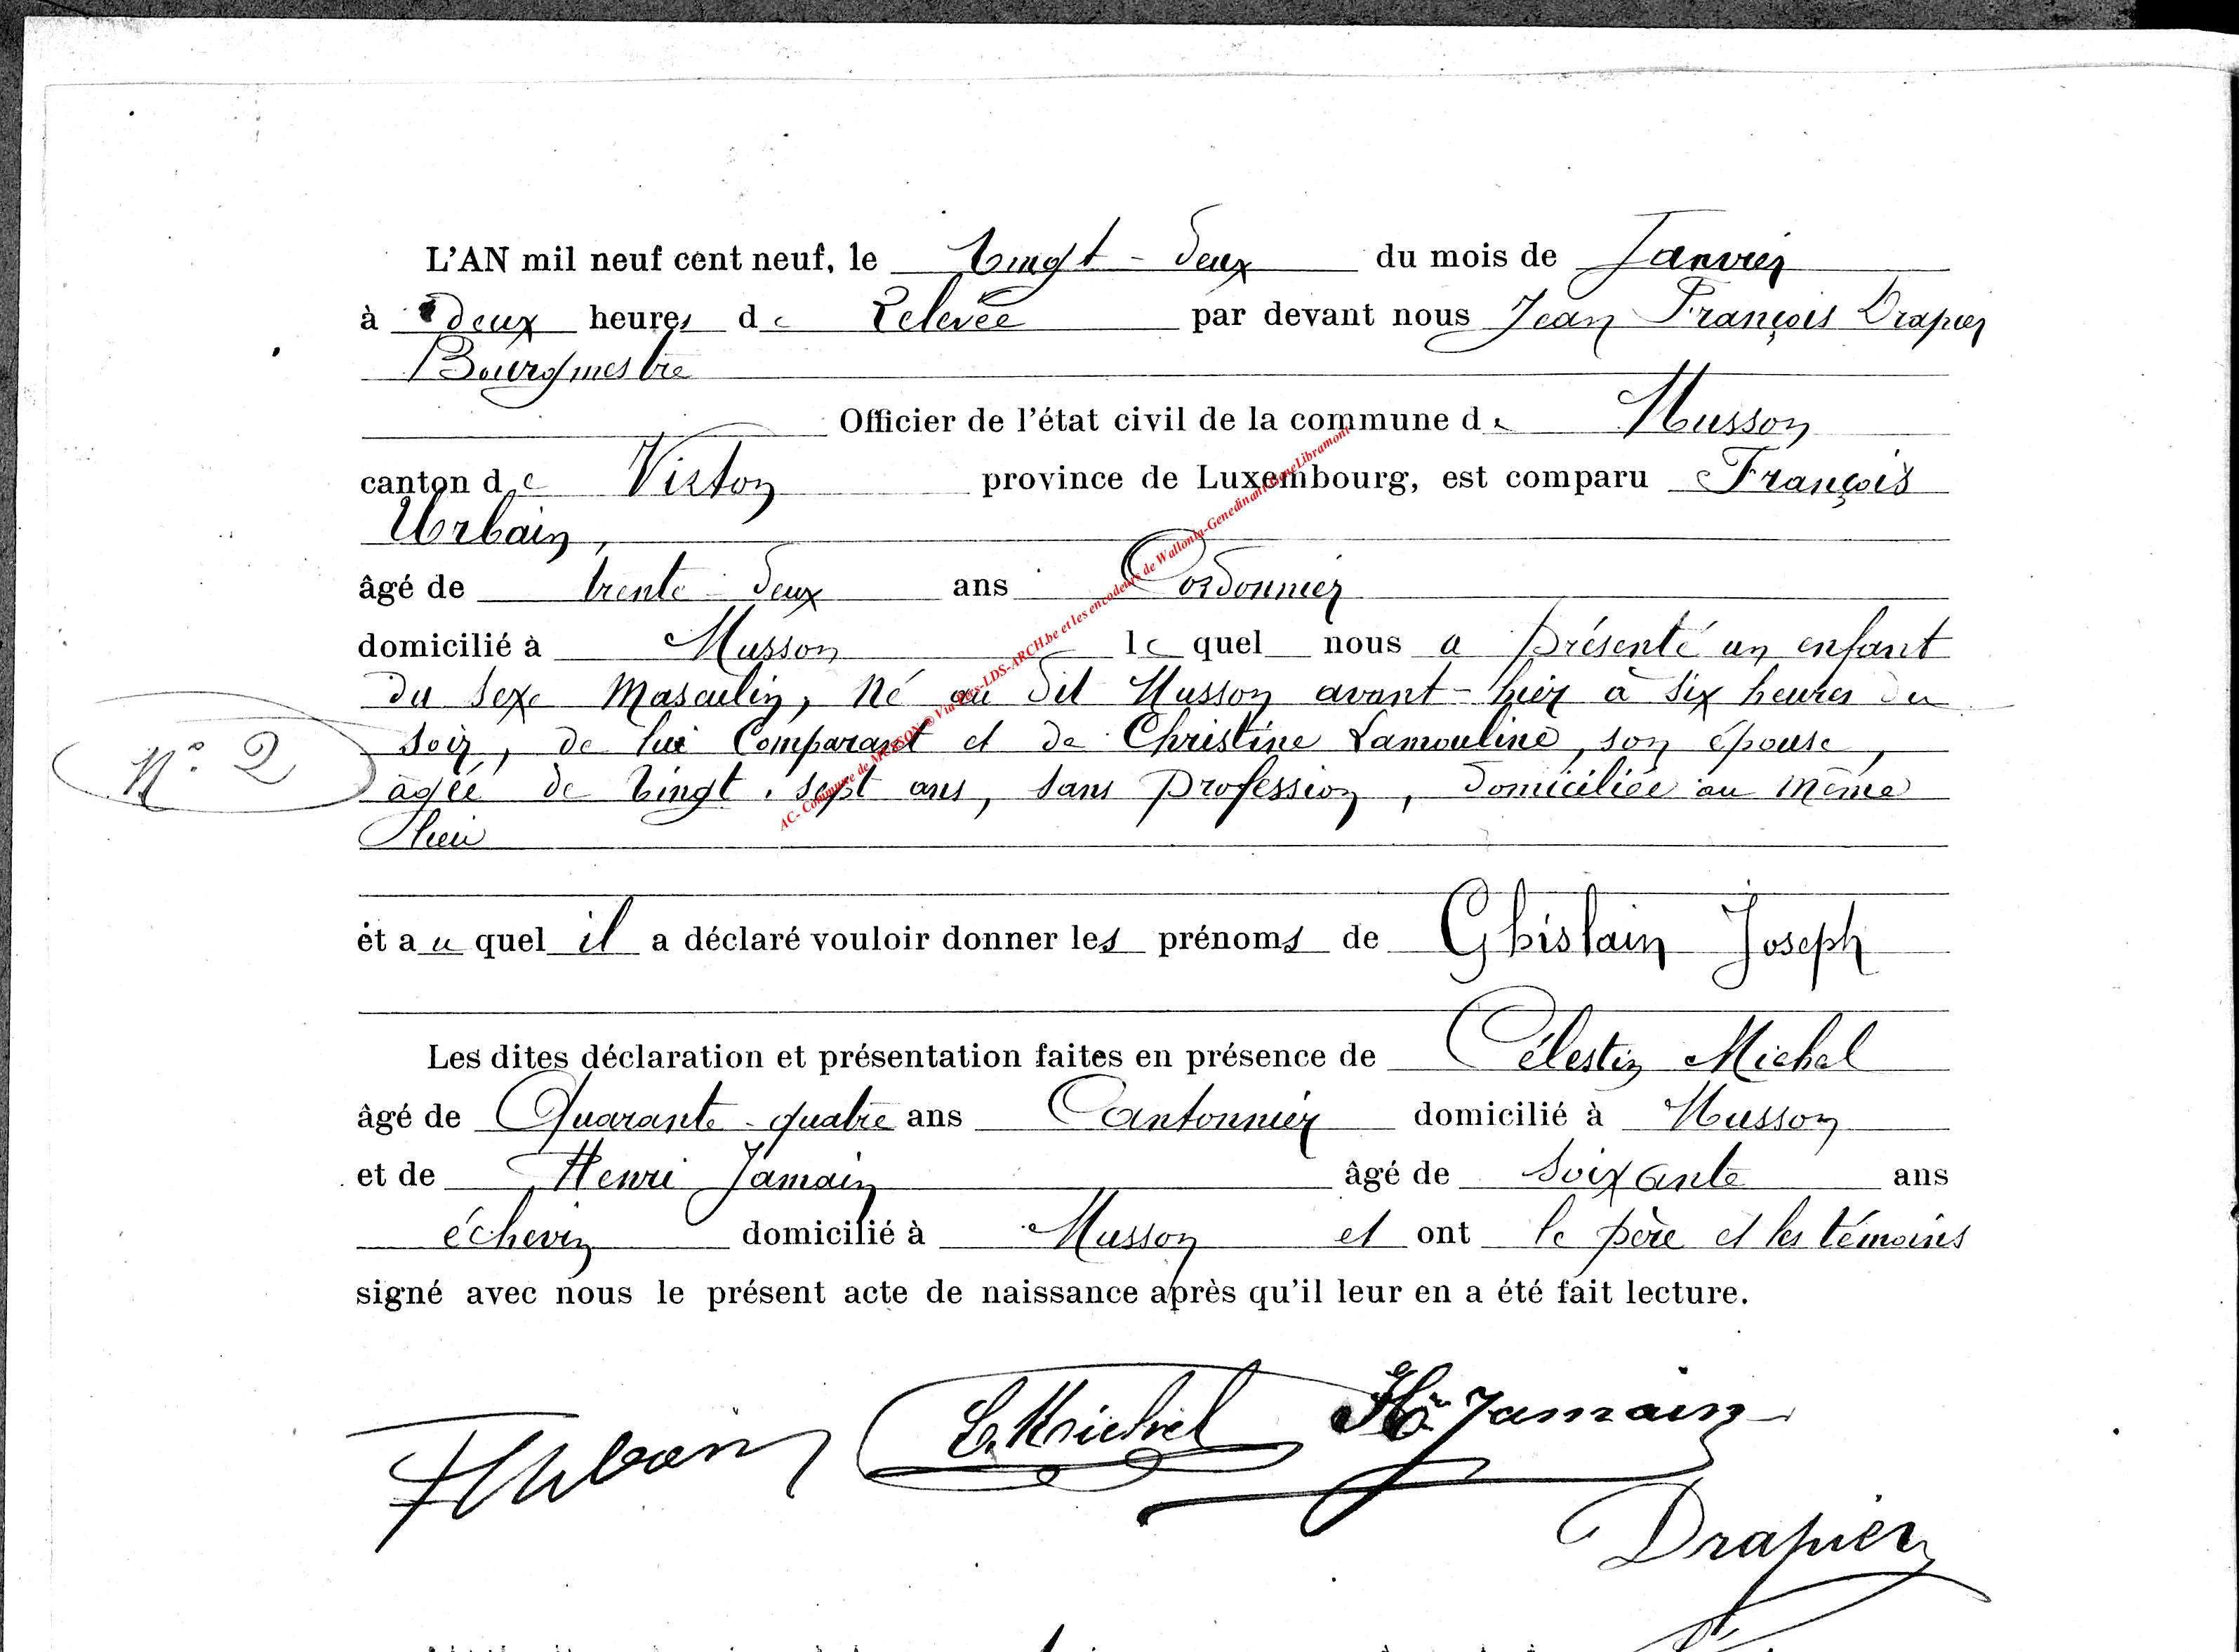 L'AN mil neuf cent neuf, le Vingt-deux du mois de Janvier
à deux heures de Relevée par devant nous Jean François Drapier
Bourgmestre
Officier de l'état civil de la commune de Musson
canton de Virton province de Luxembourg, est comparu François
Urbain,
âgé de trente-deux ans Cordonnier
domicilié à Musson lequel nous a présenté un enfant
du sexe Masculin, Né au dit Musson avant-hier à six heures du
soir, de lui Comparant et de Christine Lamouline, son épouse,
N° 2
âgée de Vingt-sept ans, sans profession, domiciliée au même
lieu
et auquel il a déclaré vouloir donner les prénoms de Ghislain Joseph
Les dites déclaration et présentation faites en présence de Célestin Michel
âgé de Quarante-quatre ans Cantonnier domicilié à Musson
et de Henri Jamain âgé de soixante ans
échevin domicilié à Musson et ont le père et les témoins
signé avec nous le présent acte de naissance après qu'il leur en a été fait lecture.
FUrbain C. Michel Hri Jamain
Drapier
AC- Commune de MUSSON © Via
-LDS-ARCH.be et les encodeurs de Wallonia-Genedinant
Libramont